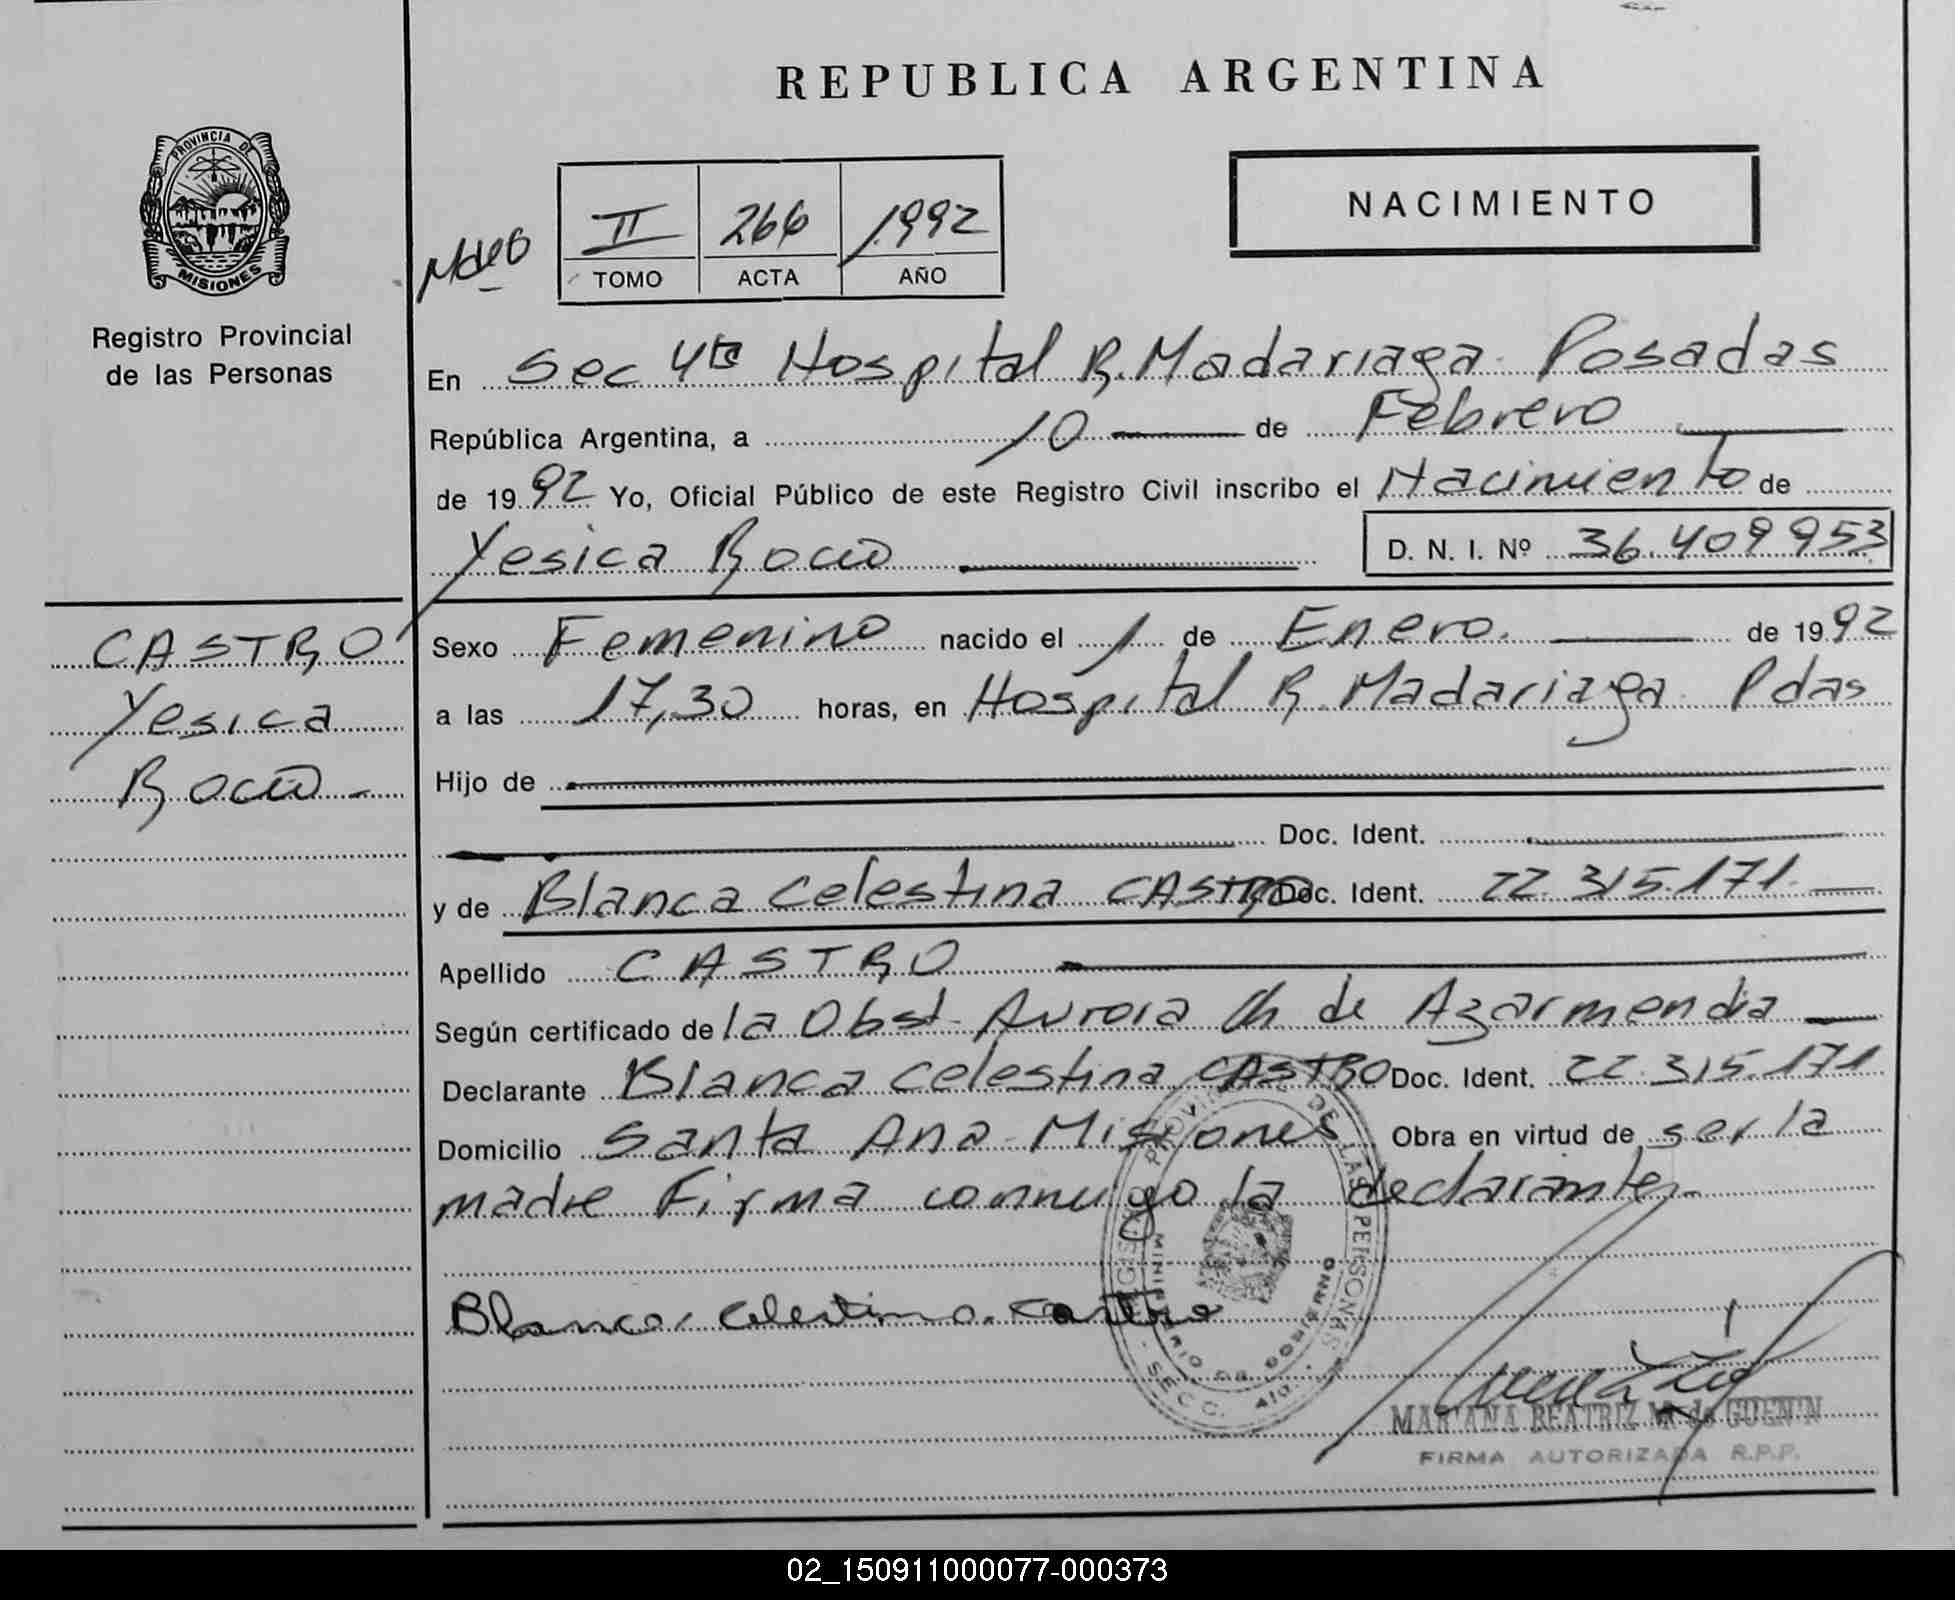 REPUBLICA ARGENTINA
PROVINCIA DE
MISIONES
Registro Provincial
de las Personas
NACIMIENTO
II 266 1992
TOMO ACTA AÑO
En Sec 4ta Hospital R. Madariaga Posadas
República Argentina, a 10 de Febrero
de 1992 Yo, Oficial Público de este Registro Civil inscribo el Nacimiento de
Yesica Rocio D. N. I. Nº 36.409953
CASTRO
Yesica
Rocio
Sexo Femenino nacido el 1 de Enero. de 1992
a las 17,30 horas, en Hospital R. Madariaga Pdas
Hijo de
Doc. Ident.
y de Blanca Celestina CASTRO Doc. Ident. 22.315.171
Apellido CASTRO
Según certificado de la Obst. Aurora Ch de Azarmendia
Declarante Blanca Celestina CASTRO Doc. Ident. 22.315.171
Domicilio Santa Ana Misiones Obra en virtud de ser la
madre Firma conmigo la declarante.
Blanca Celestina Castro
DE LAS PERSONAS
MINISTERIO DE GOBIERNO
SECC. 4ta.
MARIANA BEATRIZ M. de GUENIN
FIRMA AUTORIZADA R.P.P.
02_150911000077-000373